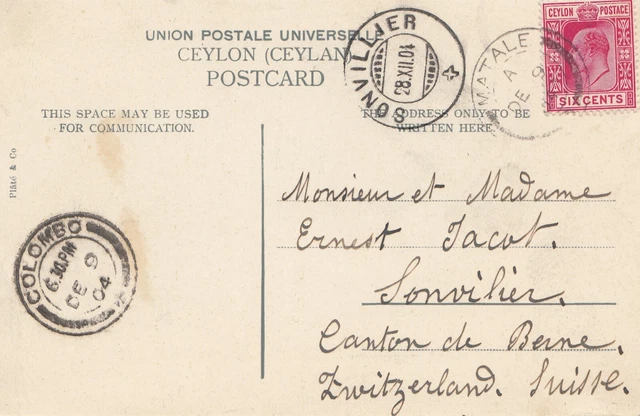 UNION POSTALE UNIVERSELLE
CEYLON (CEYLAN)
POSTCARD
THIS SPACE MAY BE USED
FOR COMMUNICATION.
THE ADDRESS ONLY TO BE
WRITTEN HERE.
SONVILLIER
28.XII.04
MATALE
A
DE 9
CEYLON POSTAGE
SIX CENTS
Plâté & Co
COLOMBO
6.30.PM
DE 9
04
Monsieur et Madame
Ernest Jacot.
Sonvilier.
Canton de Berne.
Zwitzerland. Suisse.